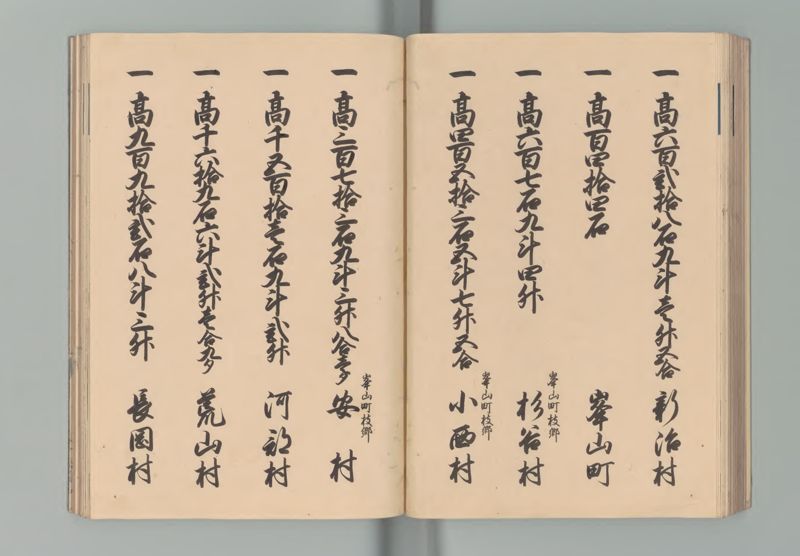 一 高六百弐拾八石九斗壱升五合 新治村
一 高百四拾四石 峯山町
一 高六百七石九斗四升 峯山町枝郷 杉谷村
一 高四百五拾三石五斗七升五合 峯山町枝郷 小西村
一 高三百七拾三石九斗三升八合壱夕 峯山町枝郷 安村
一 高千五百拾壱石九斗弐升 河部村
一 高千六拾九石六斗弐升壱合九夕 荒山村
一 高九百九拾弐石八斗三升 長岡村